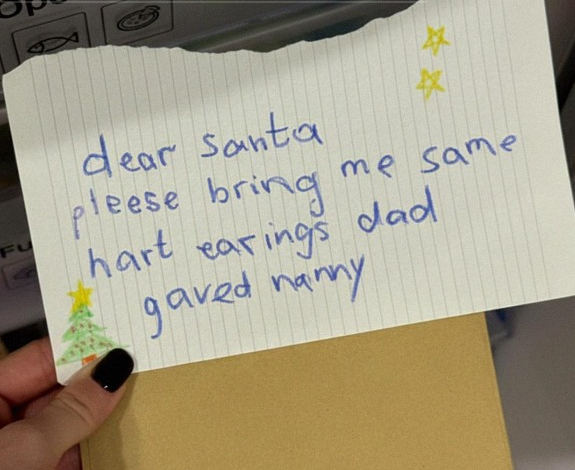 dear santa
pleese bring me same
hart earings dad
gaved nanny